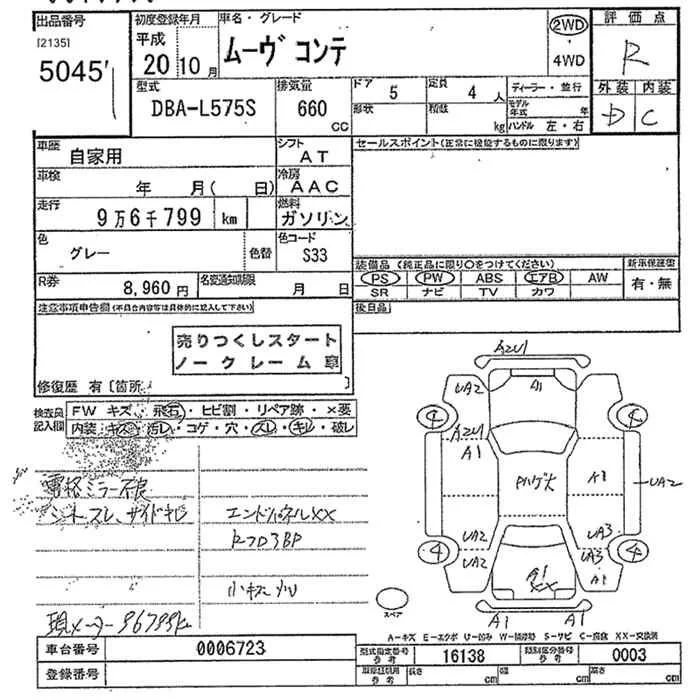 出品番号 初度登録年月 車名・グレード 評価点
[2135] 平成 ムーヴ コンテ 2WD R
5045 20 10月 4WD
型式 排気量 ドア 定員 ディーラー・並行 外装 内装
DBA-L575S 660 CC 5 4人 D C
形状 積数 kg モデル年式 年
ハンドル 左・右
車歴 自家用 シフト AT セールスポイント(正常に機能するものに限ります)
車検 年 月( 日) 冷房 AAC
走行 9万6千799 km 燃料 ガソリン
色 グレー 色替 色コード S33
装備品 (純正品に限り○をつけてください) 新車保証書
R券 8,960円 名変通知期限 月 日
PS PW ABS エアB AW 有・無
SR ナビ TV カワ
注意事項申告欄(不具合内容等は具体的に記入して下さい) 後日品
売りつくしスタート
ノークレーム 車
修復歴 有 [箇所 ]
検査員記入欄 FW キズ・飛石・ヒビ割・リペア跡・×要
内装・キズ・汚レ・コゲ・穴・スレ・キレ・破レ
電格ミラー不良
シートスレ、サイドキレ エンドパネルXX
小キズ 凹
現メーター 96799km
AZU1
UA2 A1
AZU1
A1 Pハゲ大 A3 UA2
UA2 UA3
UA2 UA3
A1 XX A1
A1 A1
4 4 4 4
スペア
A-キズ E-エクボ U-凹み W-補修跡 S-サビ C-腐食 XX-交換済
車台番号 0006723 型式指定番号 参考 16138 類別区分番号 参考 0003
登録番号 長さ cm 幅 cm 高さ cm